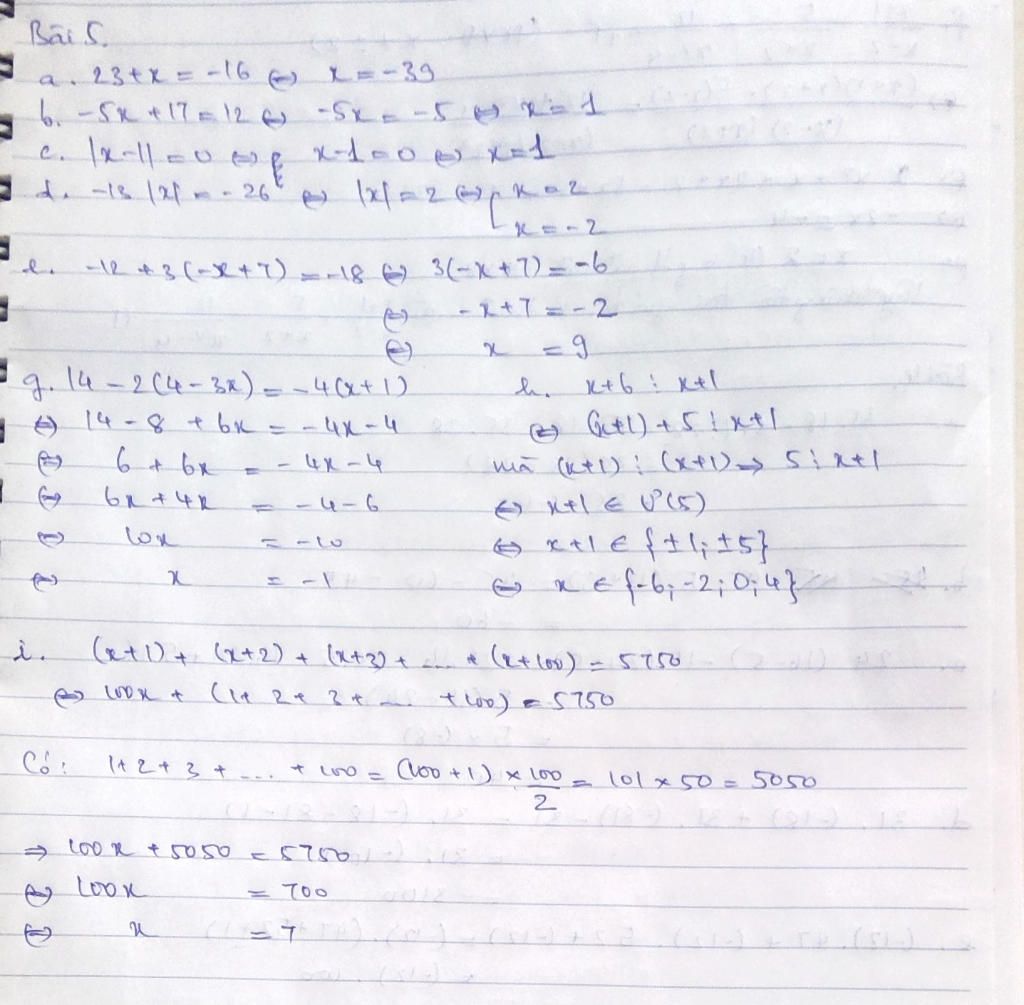 Bài 5.
a. 23+x = -16 ⇔ x = -39
b. -5x + 17 = 12 ⇔ -5x = -5 ⇔ x = 1
c. |x-1| = 0 ⇔ x-1 = 0 ⇔ x = 1
d. -13 |x| = -26 ⇔ |x| = 2 ⇔ [ x = 2
x = -2
e. -12 + 3(-x+7) = -18 ⇔ 3(-x+7) = -6
⇔ -x+7 = -2
⇔ x = 9
g. 14 - 2(4-3x) = -4(x+1)
⇔ 14 - 8 + 6x = -4x - 4
⇔ 6 + 6x = -4x - 4
⇔ 6x + 4x = -4 - 6
⇔ 10x = -10
⇔ x = -1
h. x+6 ⋮ x+1
⇔ (x+1) + 5 ⋮ x+1
mà (x+1) ⋮ (x+1) ⇒ 5 ⋮ x+1
⇔ x+1 ∈ Ư(5)
⇔ x+1 ∈ {±1; ±5}
⇔ x ∈ {-6; -2; 0; 4}
i. (x+1) + (x+2) + (x+3) + ... + (x+100) = 5750
⇔ 100x + (1+ 2 + 3 + ... + 100) = 5750
Có: 1+2+3+ ... + 100 = (100+1) × 100/2 = 101 × 50 = 5050
⇒ 100x + 5050 = 5750
⇔ 100x = 700
⇔ x = 7